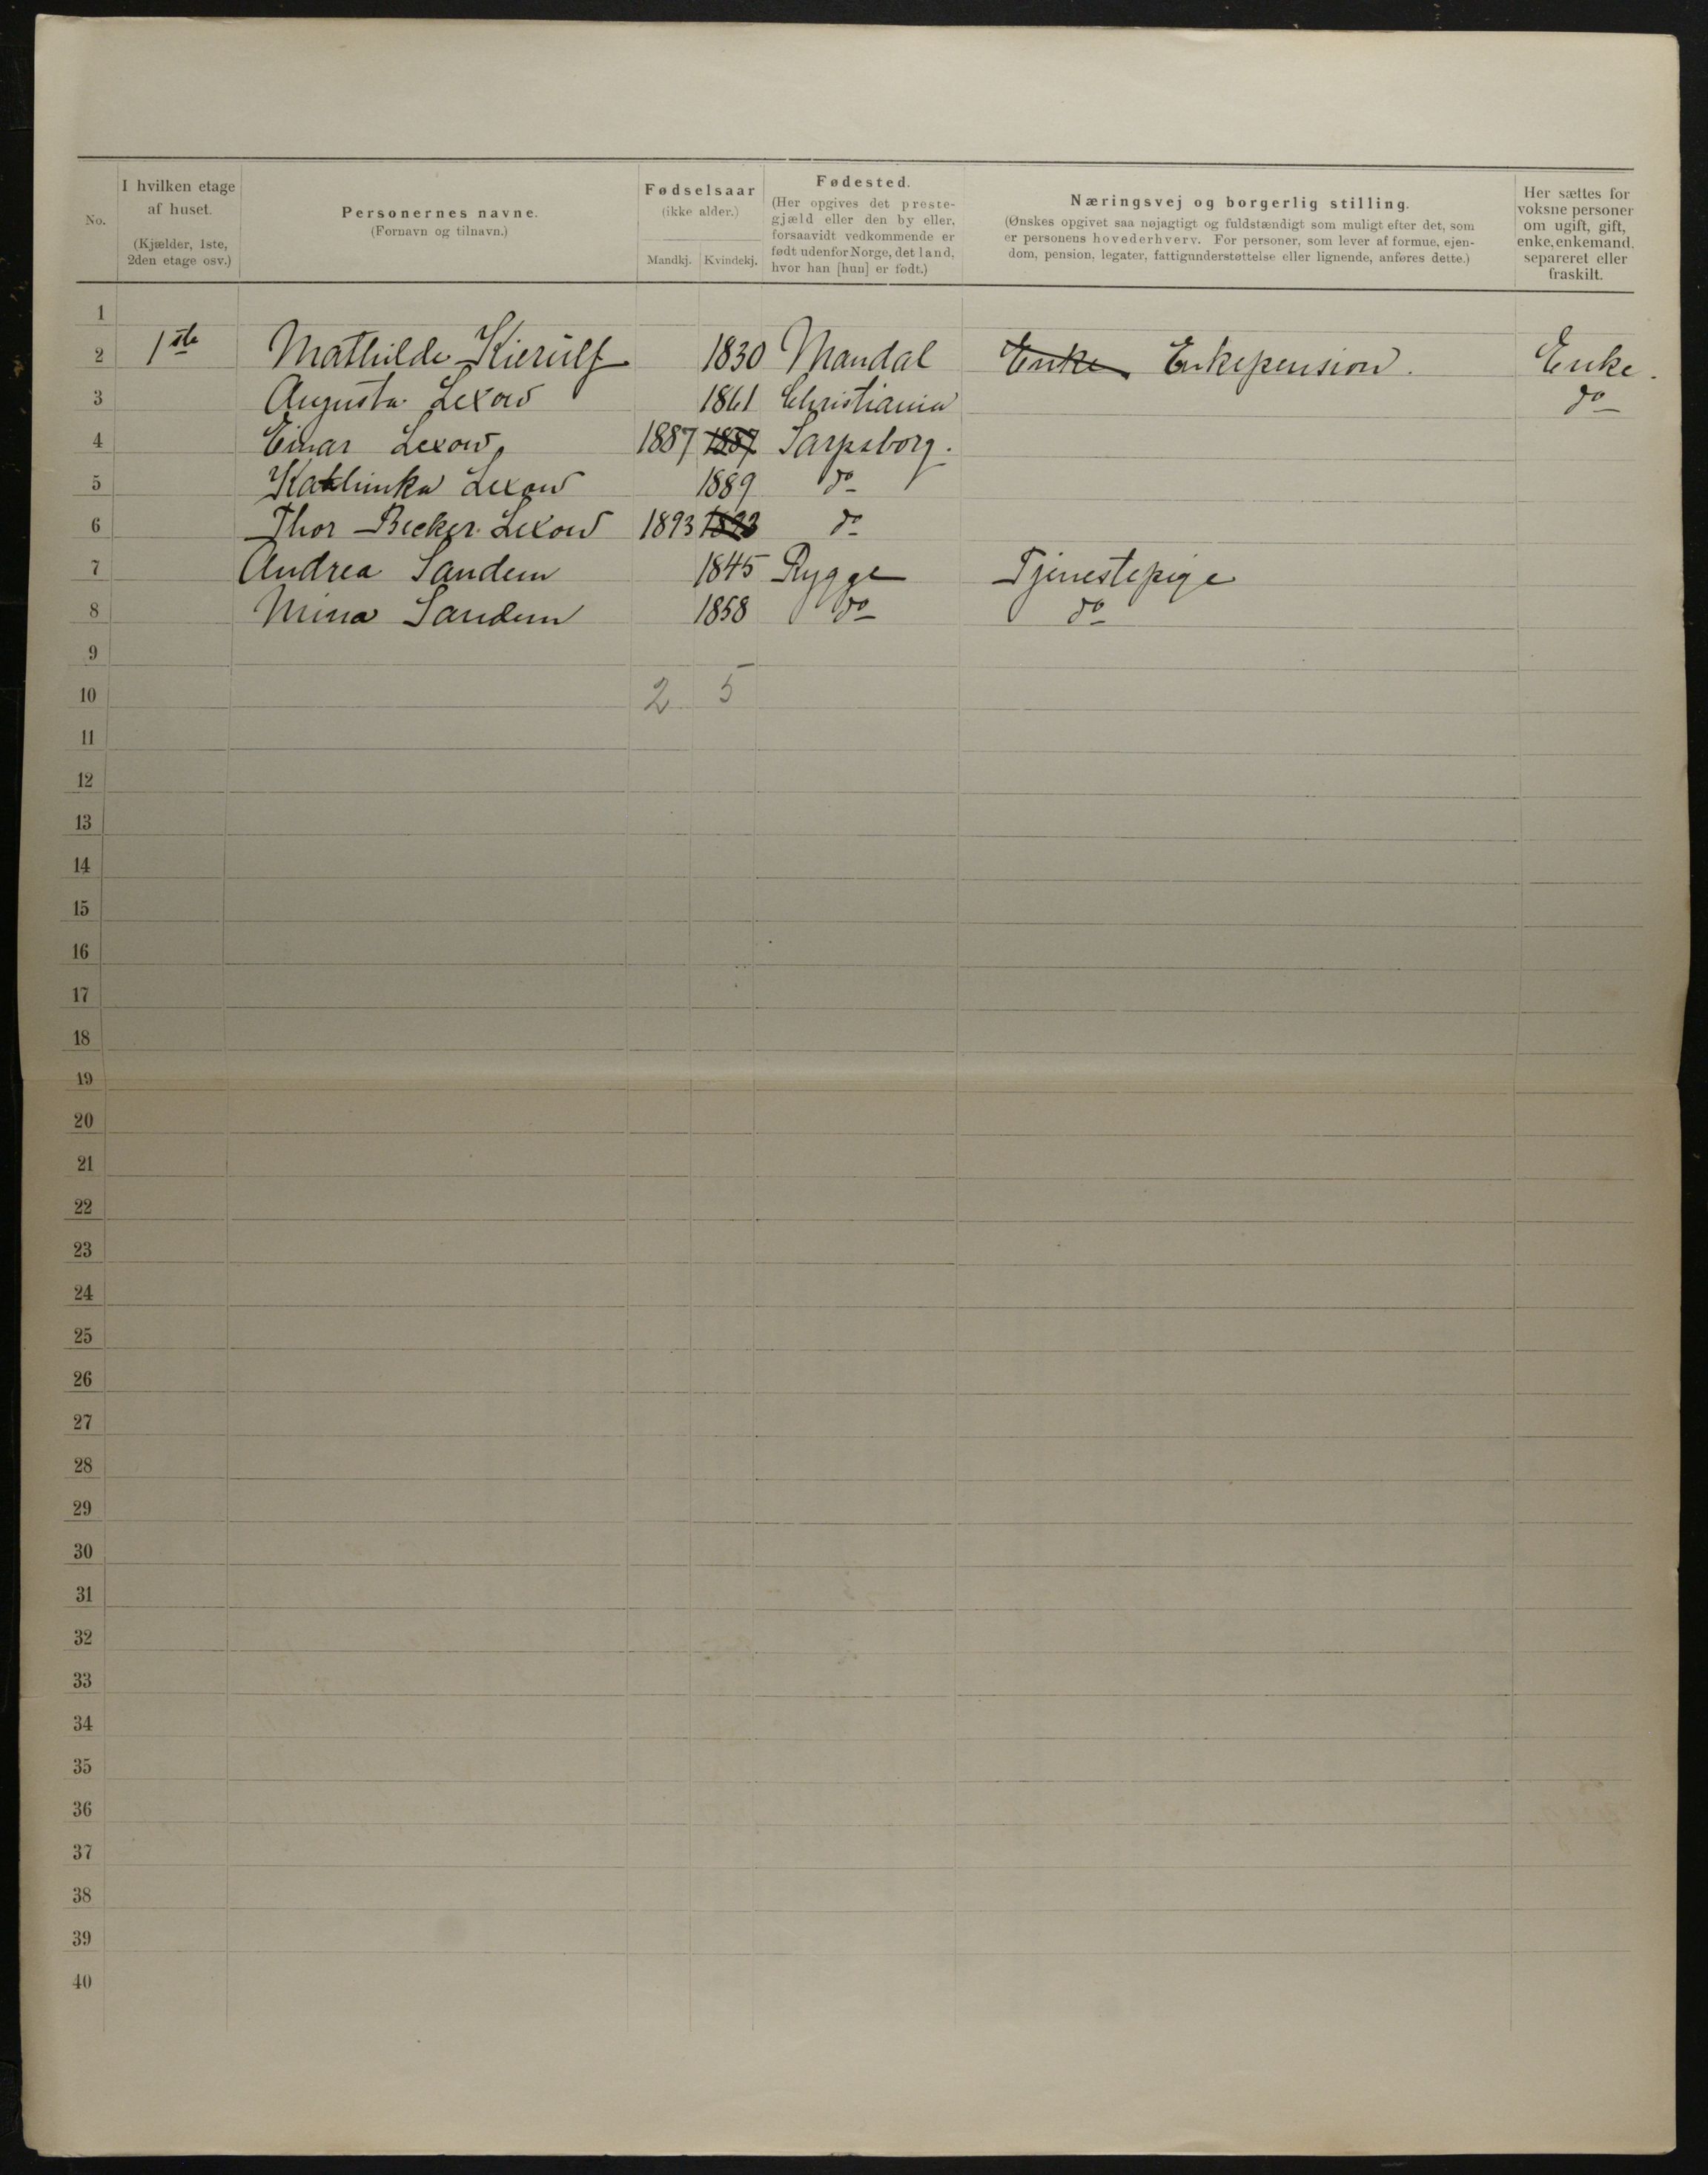 No.
I hvilken etage
af huset.
(Kjælder, 1ste,
2den etage osv.)
Personernes navne.
(Fornavn og tilnavn.)
Fødselsaar
(ikke alder.)
Mandkj. Kvindekj.
Fødested.
(Her opgives det preste-
gjæld eller den by eller,
forsaavidt vedkommende er
født udenfor Norge, det land,
hvor han [hun] er født.)
Næringsvej og borgerlig stilling.
(Ønskes opgivet saa nøjagtigt og fuldstændigt som muligt efter det, som
er personens hovederhverv. For personer, som lever af formue, ejen-
dom, pension, legater, fattigunderstøttelse eller lignende, anføres dette.)
Her sættes for
voksne personer
om ugift, gift,
enke, enkemand,
separeret eller
fraskilt.
1
2 1ste Mathilde Kierulf 1830 Mandal Enke Enkepension. Enke.
3 Augusta Lexow 1861 Christiania do
4 Einar Lexow 1887 1887 Sarpsborg.
5 Kathinka Lexow 1889 do
6 Thor Becker Lexow 1893 1893 do
7 Andrea Sandem 1845 Rygge Tjenestepige
8 Mina Sandem 1858 do do
9
10 2 5
11
12
13
14
15
16
17
18
19
20
21
22
23
24
25
26
27
28
29
30
31
32
33
34
35
36
37
38
39
40